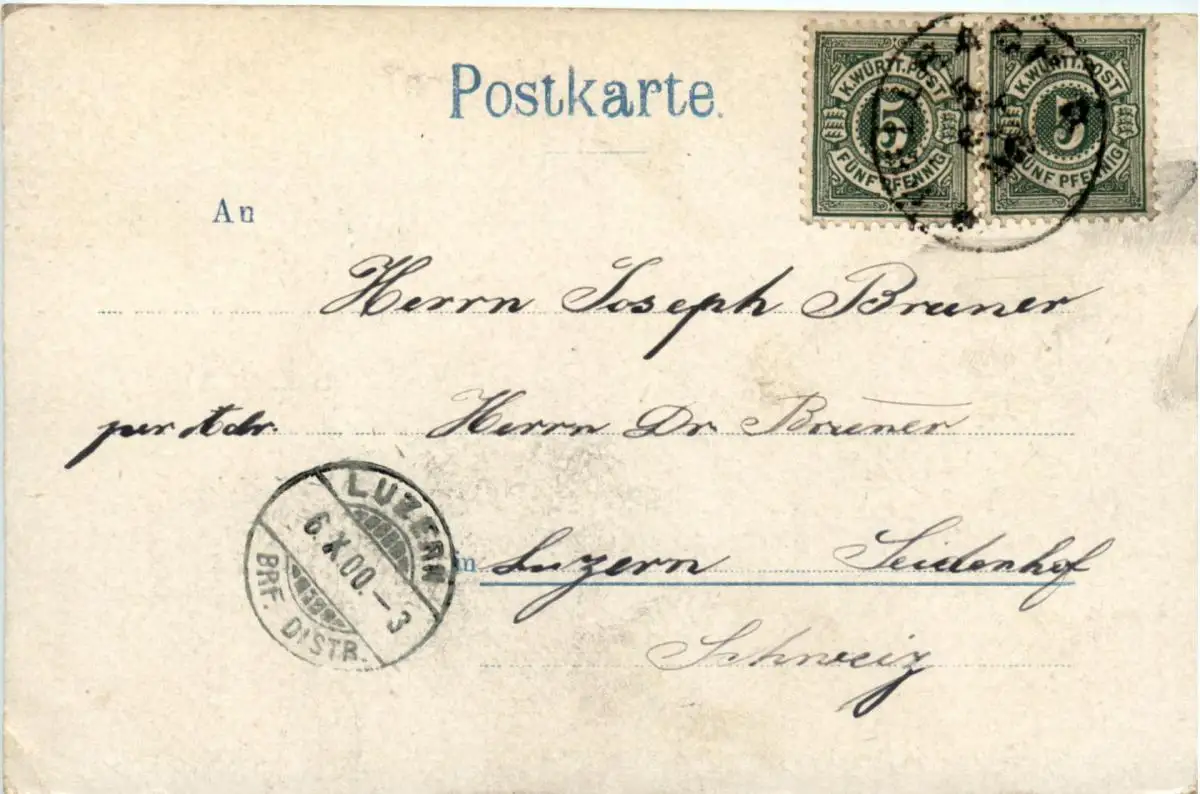 Postkarte.
K. WÜRTT. POST
5
FÜNF PFENNIG
K. WÜRTT. POST
5
FÜNF PFENNIG
An
Herrn Joseph Bruner
per Adr. Herrn Dr Bruner
in Luzern Seidenhof
Schweiz
LUZERN
6.X.00.–3
BRF. DISTR.